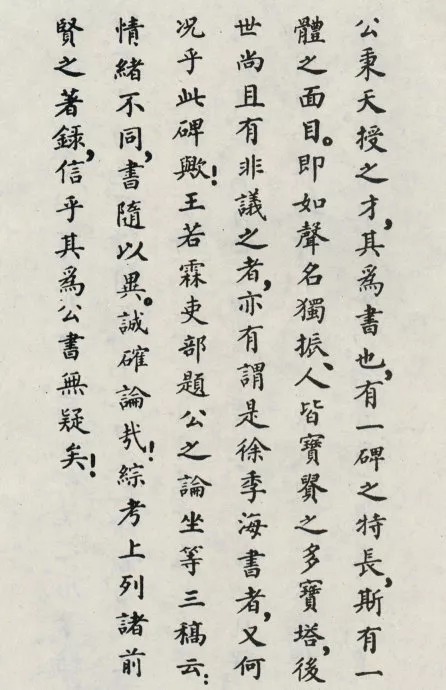 公秉天授之才，其爲書也，有一碑之特長，斯有一
體之面目。即如聲名獨振、人皆寶翫之多寶塔，後
世尚且有非議之者，亦有謂是徐季海書者，又何
况乎此碑歟！王若霖吏部題公之論坐等三稿云：
情緒不同，書隨以異。誠確論哉！綜考上列諸前
賢之著録，信乎其爲公書無疑矣！